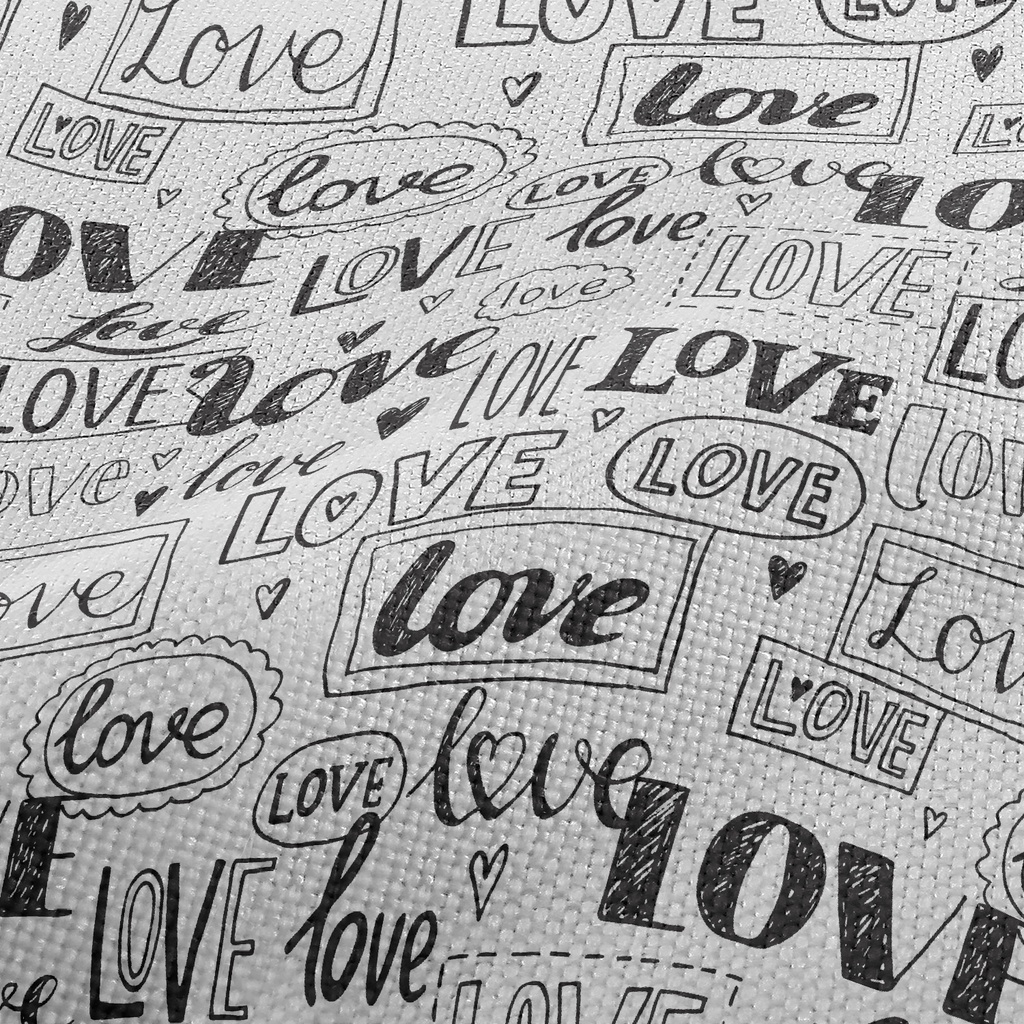 Love
LOVE
LOVE
love
LOVE
LO
love
LOVE
love
LO
OVE
LOVE
love
LOVE
love
Love
LO
LOVE
love
LOVE
LOVE
lov
ove
love
LOVE
LOVE
ove
love
Lov
LOVE
love
LOVE
love
LOVE
E
LOVE
love
ve
LOVE